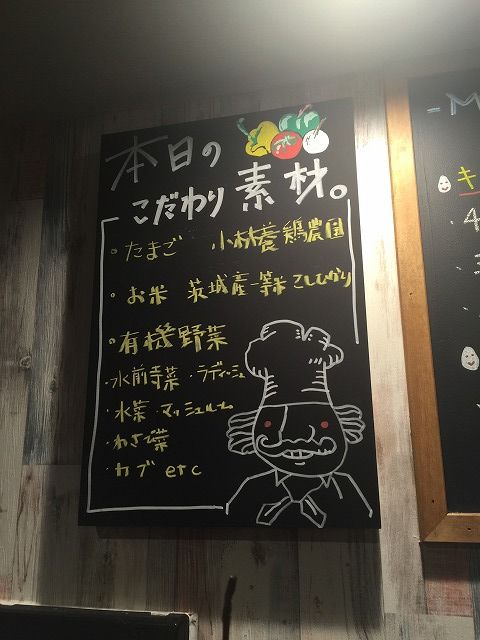 本日の
こだわり素材。
。たまご 小林養鶏農園
。お米 茨城産一等米こしひかり
。有機野菜
・水前寺菜 ・ラディッシュ
・水菜 ・マッシュルーム
・わさび菜
・カブ etc
-M
キ
・4